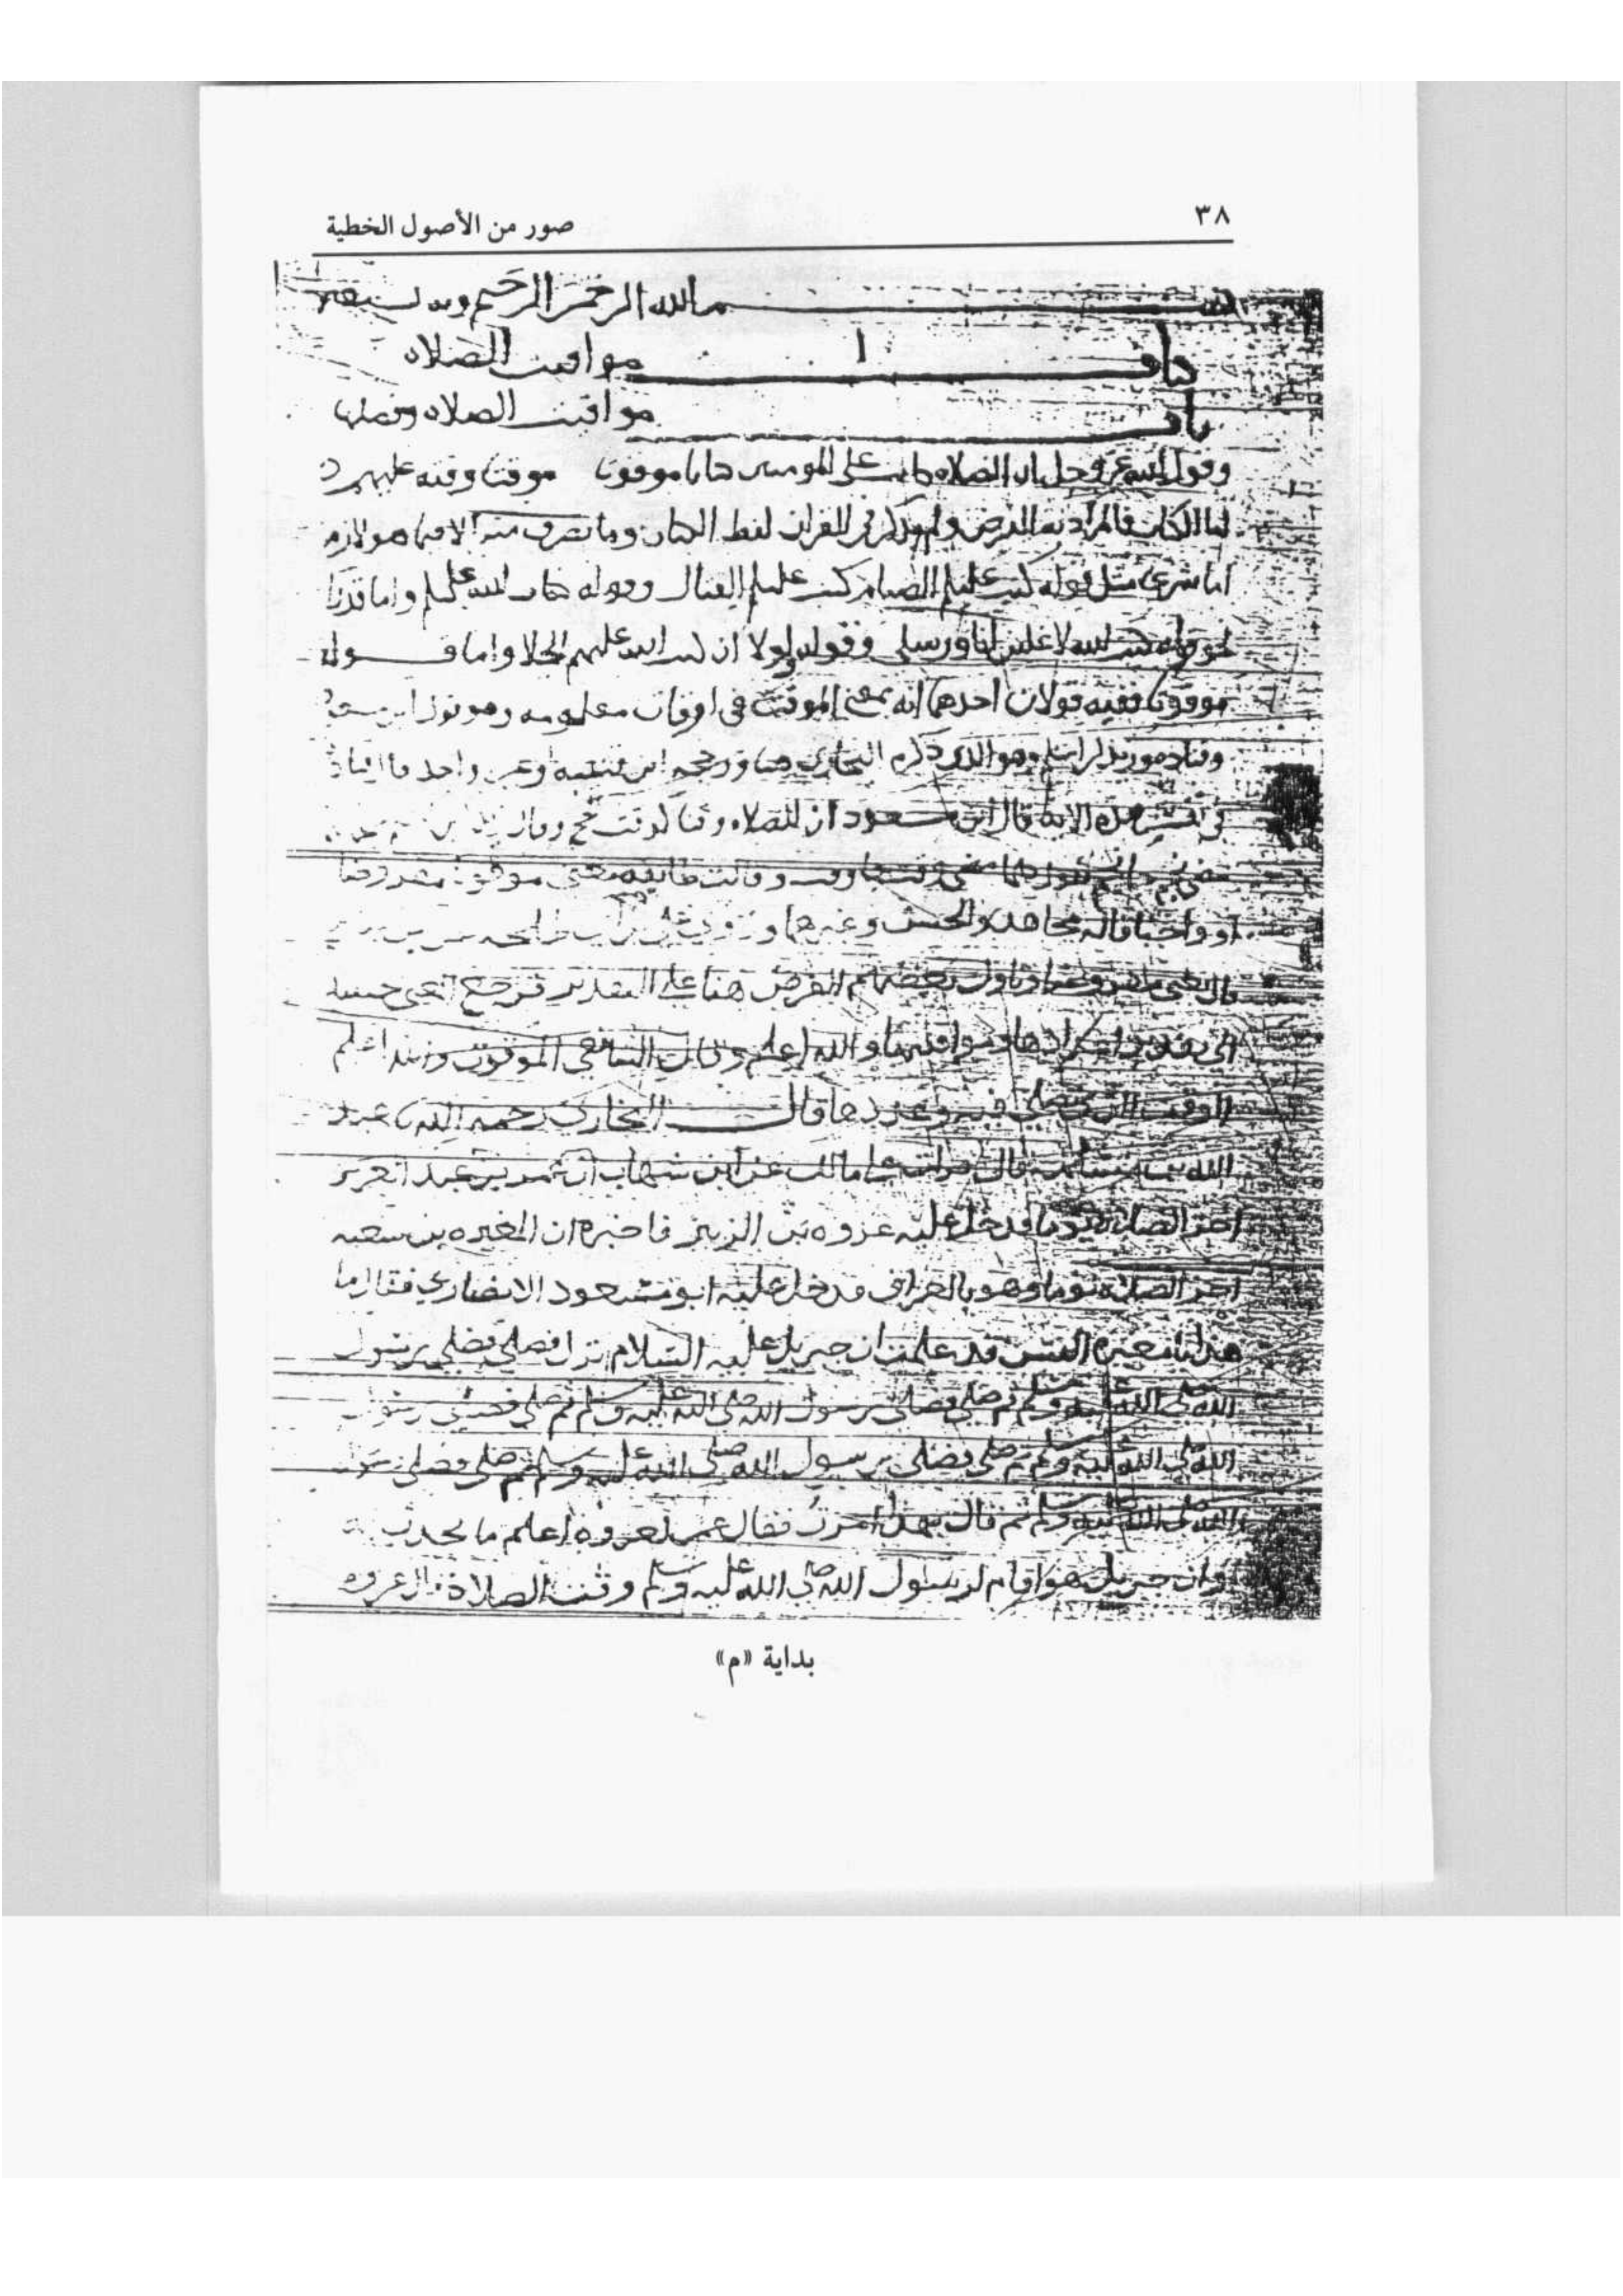 ٣٨
صور من الأصول الخطية
بسم الله الرحمن الرحيم وبه نستعين
كتاب مواقيت الصلاه
باب مواقيت الصلاه وفضلها
وقول الله عز وجل ان الصلاه كانت على المومنين كتابا موقوتا موقتا وقته عليهم
اما الكتاب فالمراد به الفرض ولم يذكر في القران لفظ الكتاب وما تصرف منه الا فيما هو لازم
اما شرعا مثل قوله كتب عليكم الصيام كتب عليكم القتال وقوله كتاب الله عليكم واما قدرا
نحو قوله كتب الله لاغلبن انا ورسلي وقوله ولولا ان كتب الله عليهم الجلا واما قوله
موقوتا ففيه قولان احدهما انه بمعنى الموقت في اوقات معلومه وهو قول ابن مسعود
وقتاده وزيد بن اسلم وهو الذي ذكره البخاري هنا ورجحه ابن قتيبه وغير واحد
في هذه الايه قال ابن مسعود ان للصلاه وقتا كوقت الحج وقال زيد بن
وقالت طايفه معنى موقوتا مفروضا
او واجبا قاله مجاهد والحسن وغيرهما
قال يعني وتاول بعضهم الفرض هنا على التقدير فرجع المعنى حينيذ
الى تقدير اعدادها ومواقيتها والله اعلم وقال الشافعي الموقوت والله اعلم
الوقت الذي يصلى فيه وعددها قال البخاري رحمه الله عبد
الله بن مسلمه قال قرات على مالك عن ابن شهاب ان عمر بن عبد العزيز
اخر الصلاه يوما فدخل عليه عروه بن الزبير فاخبره ان المغيره بن شعبه
اخر الصلاه يوما وهو بالعراق فدخل عليه ابو مسعود الانصاري فقال ما
هذا يا مغيره اليس قد علمت ان جبريل عليه السلام نزل فصلى فصلى رسول
الله صلى الله عليه وسلم ثم صلى فصلى رسول الله صلى الله عليه وسلم ثم صلى فصلى رسول
الله صلى الله عليه وسلم ثم صلى فصلى رسول الله صلى الله عليه وسلم ثم صلى فصلى رسول
الله صلى الله عليه وسلم ثم قال بهذا امرت فقال عمر لعروه اعلم ما تحدث به
وان جبريل هو اقام لرسول الله صلى الله عليه وسلم وقت الصلاة قال عروه
بداية «م»